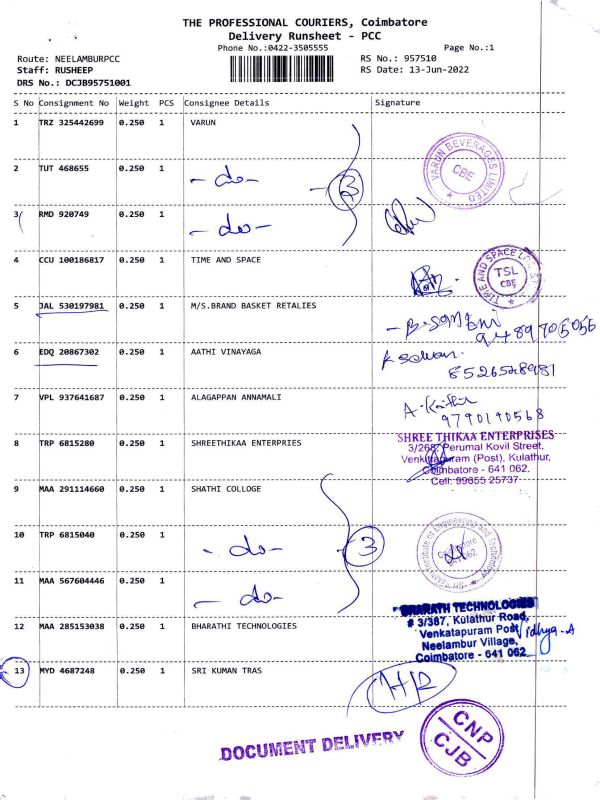 THE PROFESSIONAL COURIERS, Coimbatore
Delivery Runsheet - PCC
Phone No.:0422-3505555 Page No.:1
Route: NEELAMBURPCC RS No.: 957510
Staff: RUSHEEP RS Date: 13-Jun-2022
DRS No.: DCJB95751001
S No Consignment No Weight PCS Consignee Details Signature
1 TRZ 325442699 0.250 1 VARUN
VARUN BEVERAGES LIMITED
CBE
2 TUT 468655 0.250 1 -do- 3
3 RMD 920749 0.250 1 -do-
4 CCU 100186817 0.250 1 TIME AND SPACE
TIME AND SPACE
TSL
CBE
5 JAL 530197981 0.250 1 M/S.BRAND BASKET RETALIES
9489705056
6 EDQ 20867302 0.250 1 AATHI VINAYAGA
8526528981
7 VPL 937641687 0.250 1 ALAGAPPAN ANNAMALI
9790190568
8 TRP 6815280 0.250 1 SHREETHIKAA ENTERPRIES
SHREE THIKAA ENTERPRISES
3/268, Perumal Kovil Street,
Venkatapuram (Post), Kulathur,
Coimbatore - 641 062.
Cell: 99655 25737
9 MAA 291114660 0.250 1 SHATHI COLLOGE
10 TRP 6815040 0.250 1 -do- 3
Institute of Engineering and Technology
11 MAA 567604446 0.250 1 -do-
12 MAA 285153038 0.250 1 BHARATHI TECHNOLOGIES
BHARATH TECHNOLOGIES
# 3/387, Kulathur Road,
Venkatapuram Post, Vidhya-A
Neelambur Village,
Coimbatore - 641 062
13 MYD 4687248 0.250 1 SRI KUMAN TRAS
DOCUMENT DELIVERY
CNP
CJB